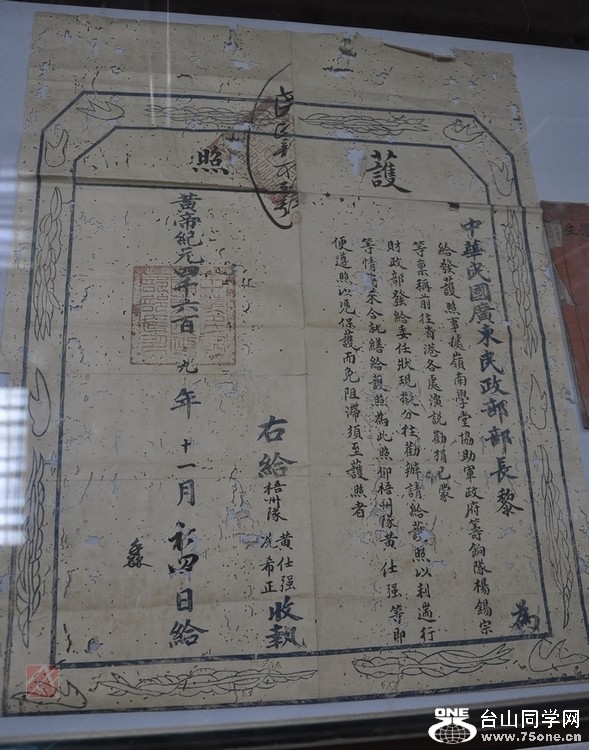 護照
中華民國廣東民政部部長黎 為
給發護照事據嶺南學堂協助軍政府籌餉隊楊錫宗
等稟稱前往省港各處演說勸捐已蒙
財政部發給委任狀現擬分往勸辦請給護照以利遄行
等情前來合就繕給護照為此照仰梧州隊黃仕强等即
便遵照以憑保護而免阻滯須至護照者
右給梧州隊 黃仕强 冼希正 收執
黃帝紀元四千六百九年十一月初四日給
台山同学网
ONE
www.75one.cn